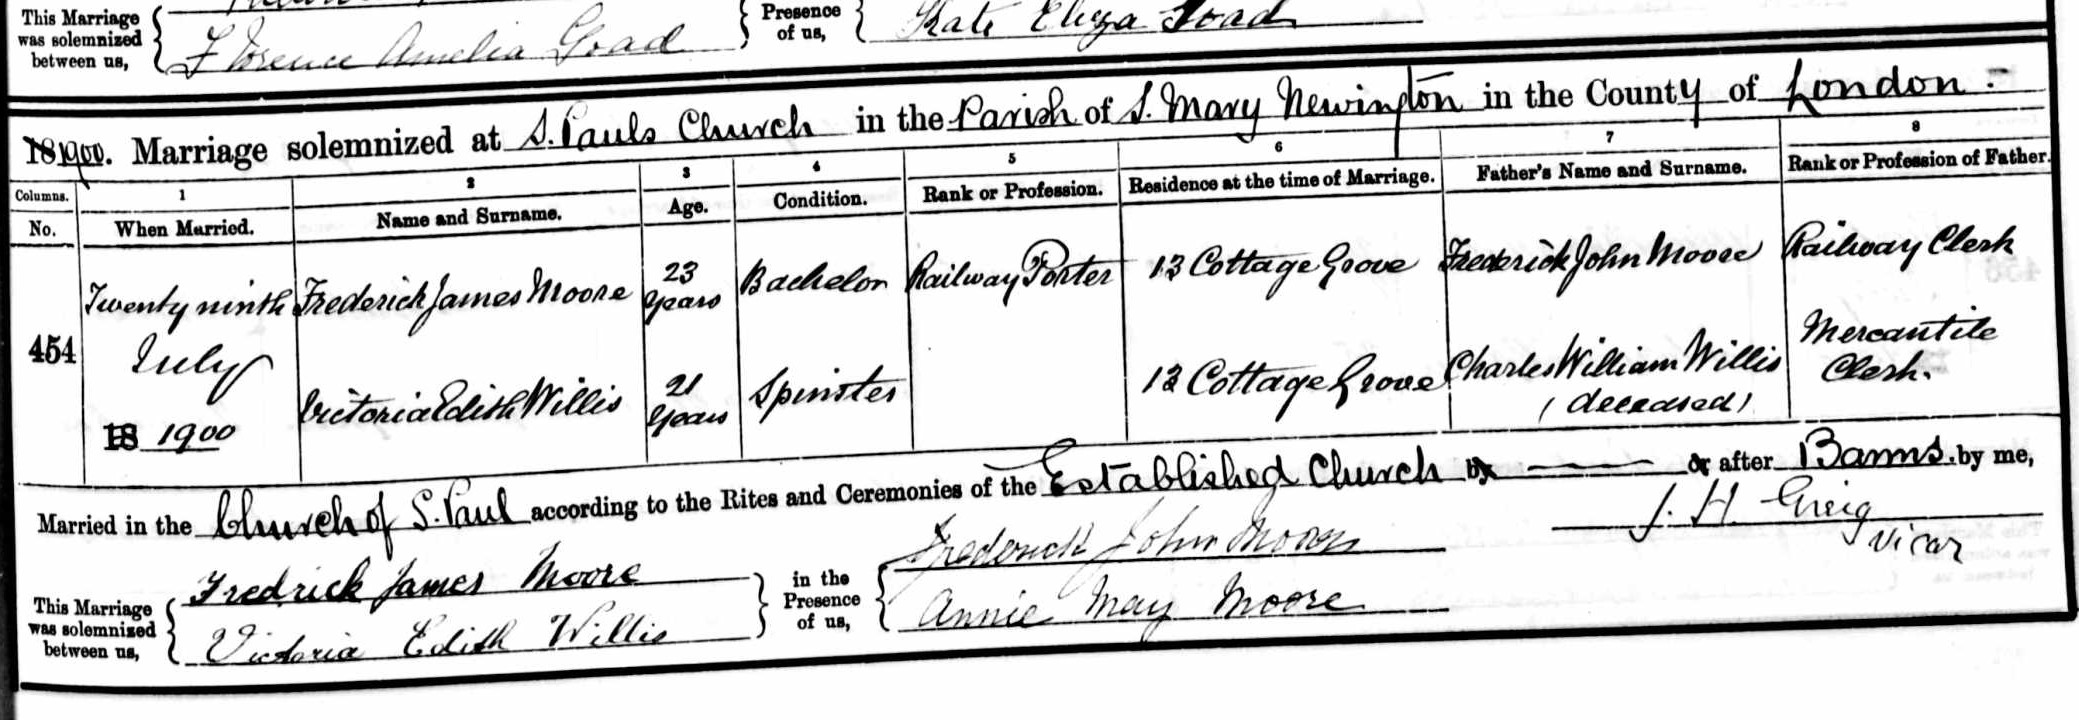 This Marriage
was solemnized
between us,
Florence Amelia Goad
Presence
of us,
Kate Eliza Goad
181900. Marriage solemnized at S. Pauls Church in the Parish of S. Mary Newington in the County of London.
Columns. 1 2 3 4 5 6 7 8
No. When Married. Name and Surname. Age. Condition. Rank or Profession. Residence at the time of Marriage. Father's Name and Surname. Rank or Profession of Father.
454
Twenty ninth
July
18 1900
Frederick James Moore
23
Years
Bachelor
Railway Porter
13 Cottage Grove
Frederick John Moore
Railway Clerk
Victoria Edith Willis
21
Years
Spinster
13 Cottage Grove
Charles William Willis
(deceased)
Mercantile
Clerk.
Married in the Church of S. Paul according to the Rites and Ceremonies of the Established Church by —— or after Banns. by me,
J. H. Greig
Vicar
This Marriage
was solemnized
between us,
Fredrick James Moore
Victoria Edith Willis
in the
Presence
of us,
Frederick John Moore
Annie May Moore